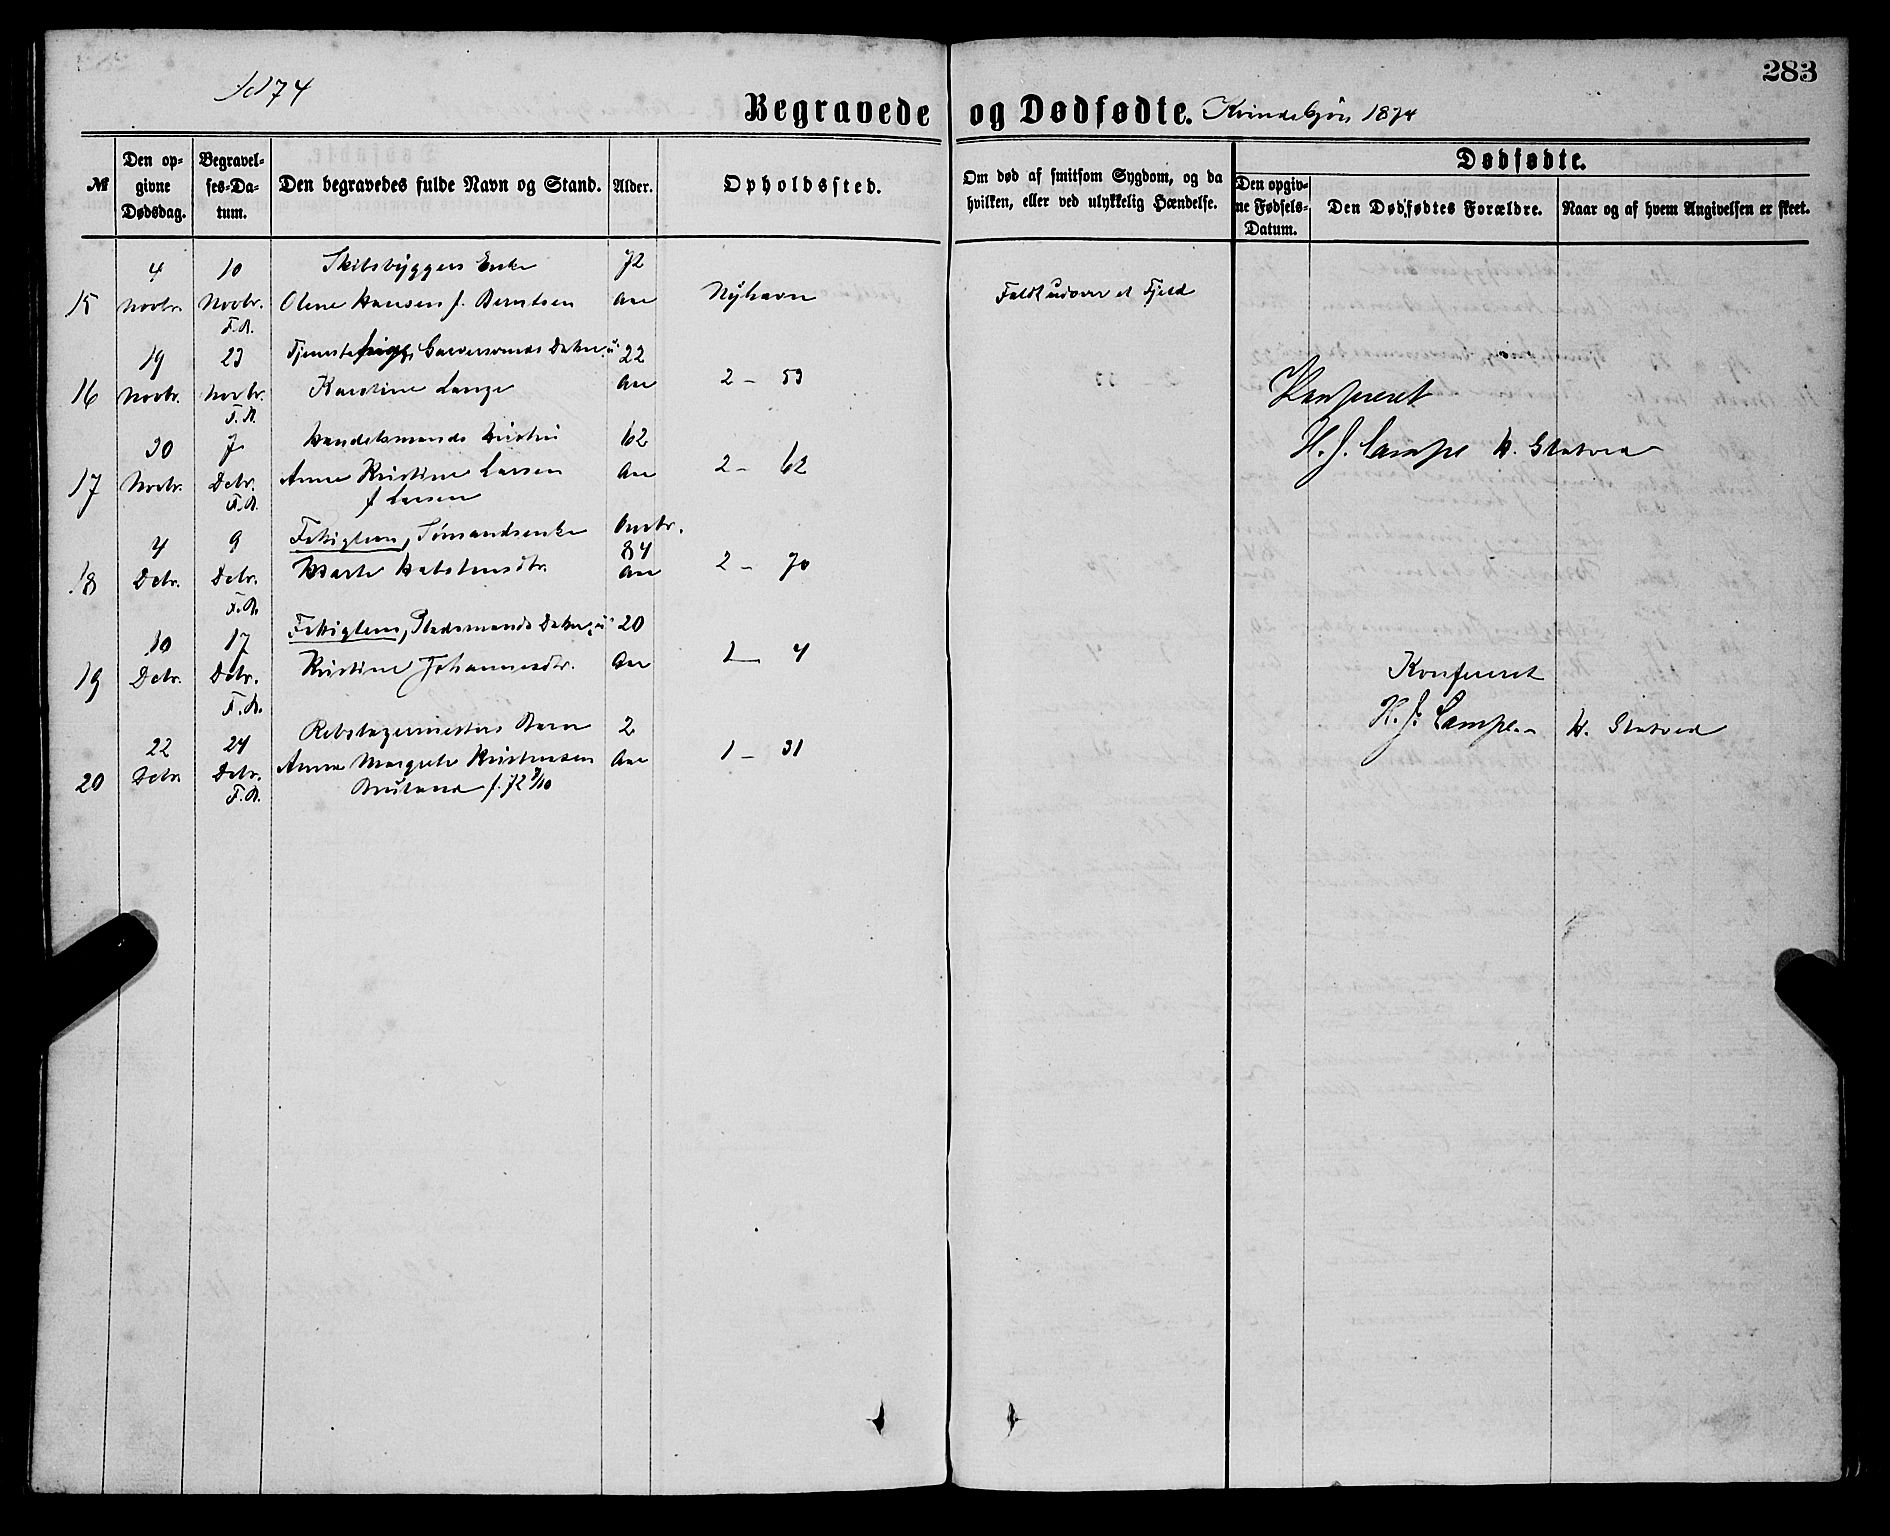 283
1874
Begravede og Dødfødte. Kvindekjøn 1874
№
Den opgivne Dødsdag.
Begravelses-Datum.
Den begravedes fulde Navn og Stand.
Alder.
Opholdssted.
Om død af smitsom Sygdom, og da hvilken, eller ved ulykkelig Hændelse.
Dødfødte.
Den opgivne Fødsels-Datum.
Den Dødfødtes Forældre.
Naar og af hvem Angivelsen er skeet.
4 10 Skibsbyggers Enke 72
15 Novbr. Novbr. Olene Hansen f. Berntsen Aar Nyhavn Faldt udover et Fjeld
19 23 Datter 22
16 Novbr. Novbr. Karstine Lange Aar 2 - 53
Konfereret
30 7 Handelsmands Hustru 62
H. J. Lampe
17 Novbr. Decbr. Anne Kristine Larsen Aar 2 - 62
f. Larsen
4 9 Fattiglem, Tømandsenke
84
18 Decbr. Decbr. Marte Halstensdtr. Aar 2 - 70
10 17 Fattiglem, Pladsmands Datter 20
19 Decbr. Decbr. Kristine Johannesdtr. Aar 4
Konfereret
H. J. Lampe
22 24 Rebslagermesters Barn 2
20 Decbr. Decbr. Anna Margrete Kristensen Aar 1 - 31
f. 72 9/10